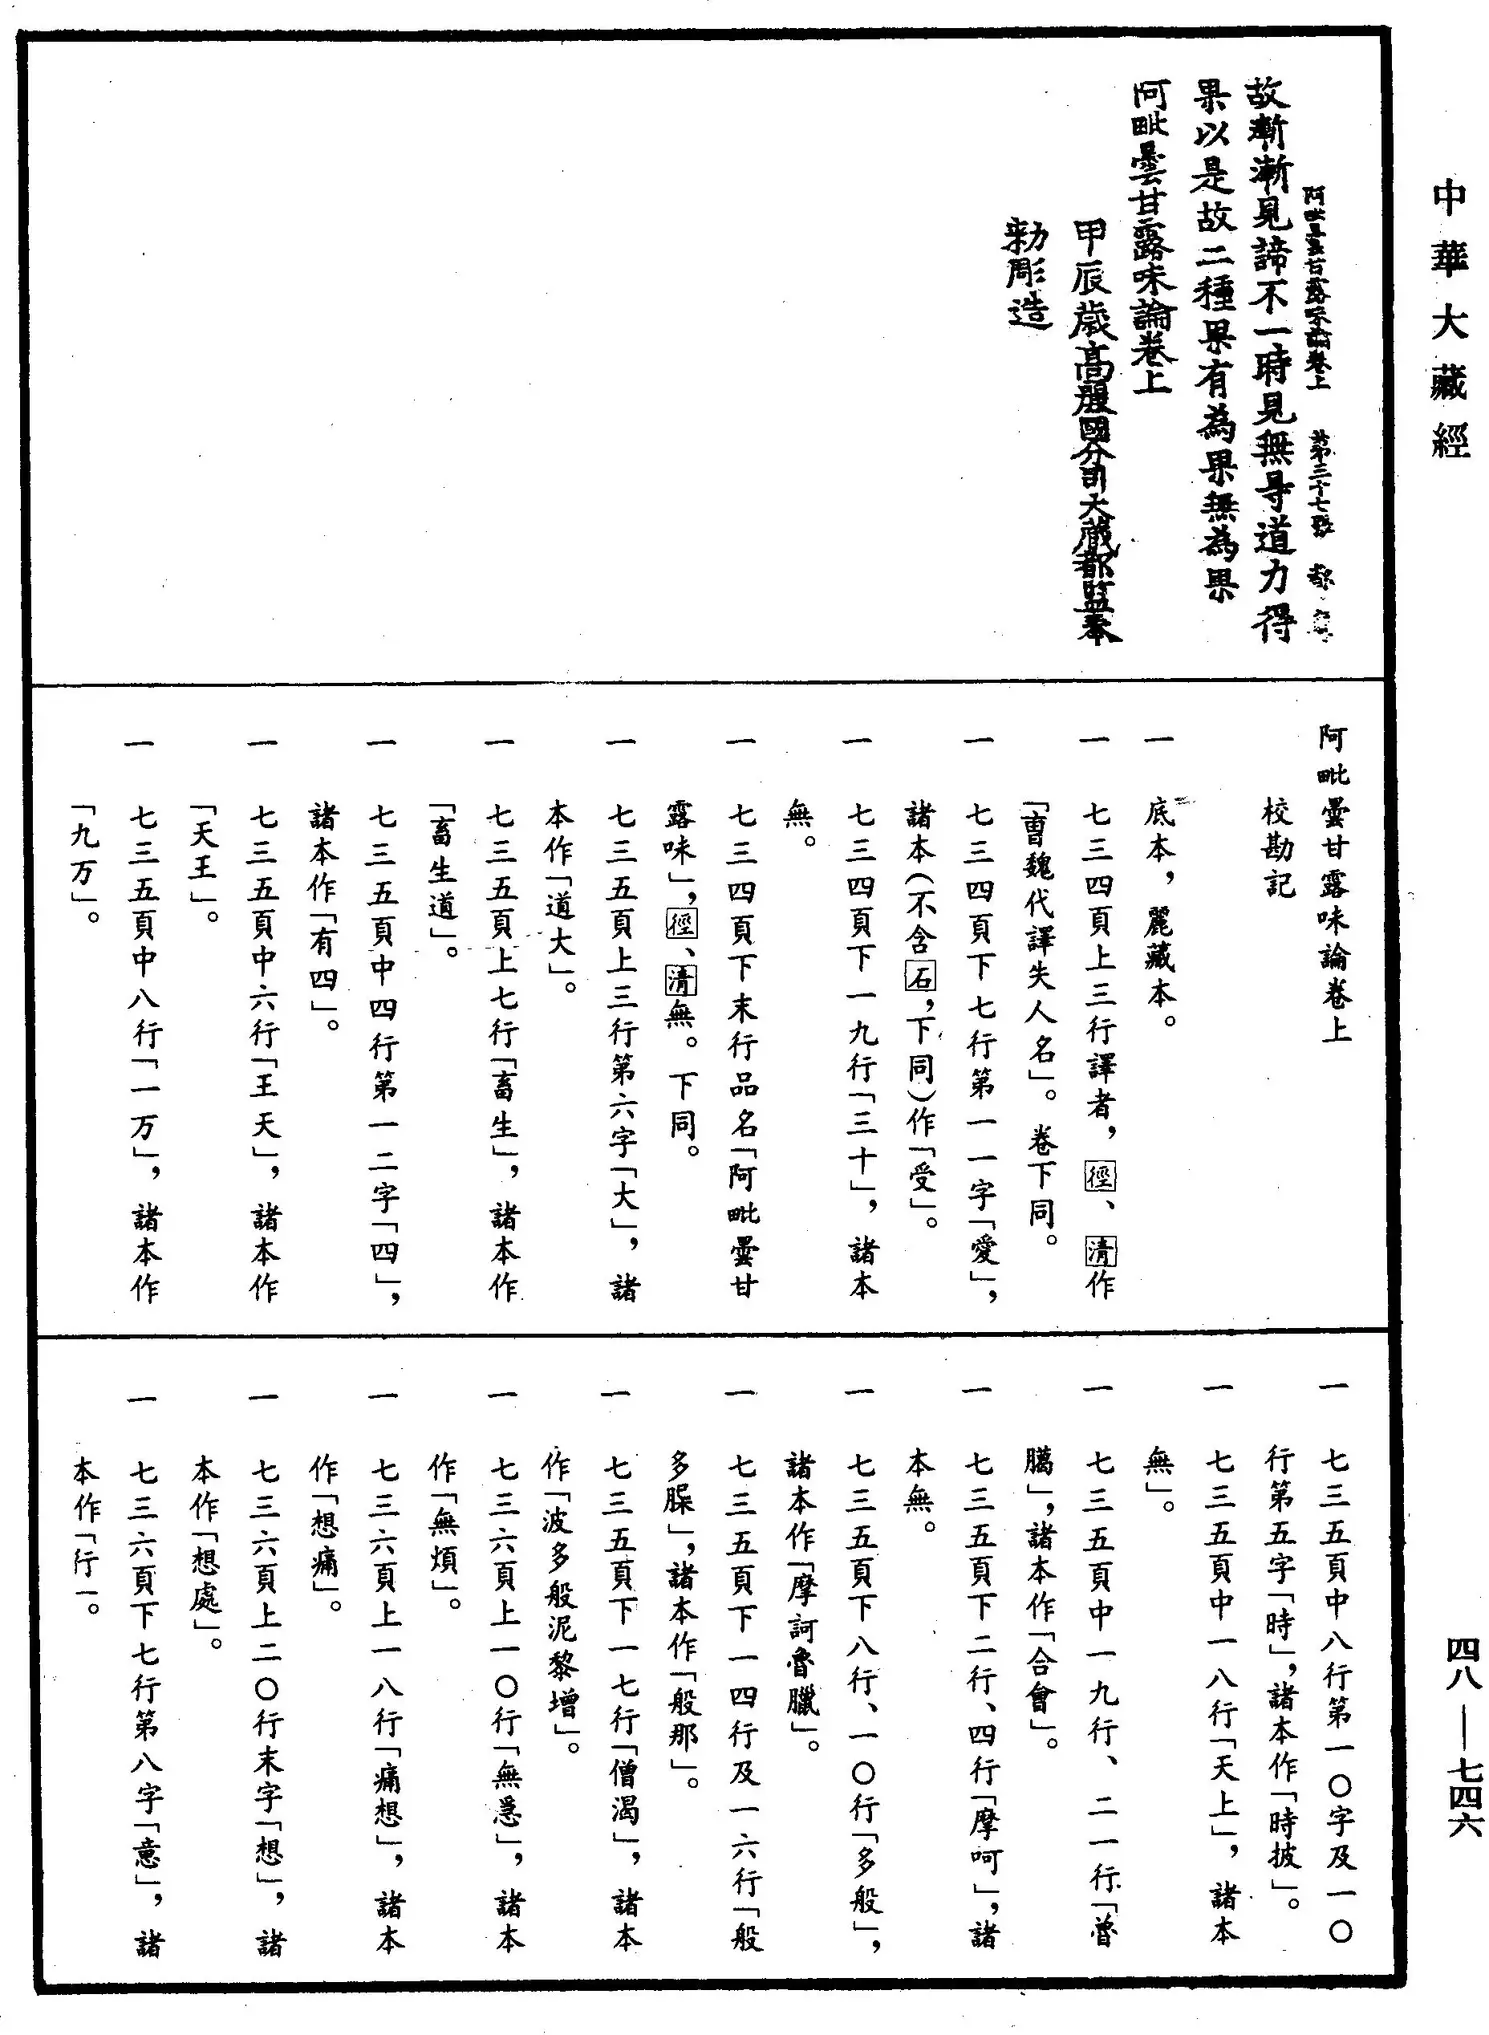 中華大藏經
阿毗曇甘露味論卷上 第三十七張
故漸漸見諦不一時見無㝵道力得
果以是故二種果有為果無為果
阿毗曇甘露味論卷上
甲辰歲高麗國分司大藏都監奉
勅彫造
阿毗曇甘露味論卷上
校勘記
一 底本，麗藏本。
一 七三四頁上三行譯者，徑、清作
「曹魏代譯失人名」。卷下同。
一 七三四頁下七行第一一字「愛」，
諸本（不含石，下同）作「受」。
一 七三四頁下一九行「三十」，諸本
無。
一 七三四頁下末行品名「阿毗曇甘
露味」，徑、清無。下同。
一 七三五頁上三行第六字「大」，諸
本作「道大」。
一 七三五頁上七行「畜生」，諸本作
「畜生道」。
一 七三五頁中四行第一二字「四」，
諸本作「有四」。
一 七三五頁中六行「王天」，諸本作
「天王」。
一 七三五頁中八行「一万」，諸本作
「九万」。
一 七三五頁中八行第一〇字及一〇
行第五字「時」，諸本作「時披」。
一 七三五頁中一八行「天上」，諸本
無」。
一 七三五頁中一九行、二一行「曾
臈」，諸本作「合會」。
一 七三五頁下二行、四行「摩呵」，諸
本無。
一 七三五頁下八行、一〇行「多般」，
諸本作「摩訶魯臘」。
一 七三五頁下一四行及一六行「般
多臊」，諸本作「般那」。
一 七三五頁下一七行「僧渴」，諸本
作「波多般泥黎增」。
一 七三六頁上一〇行「無㤅」，諸本
作「無煩」。
一 七三六頁上一八行「痛想」，諸本
作「想痛」。
一 七三六頁上二〇行末字「想」，諸
本作「想處」。
一 七三六頁下七行第八字「意」，諸
本作「行一。
四八——七四六